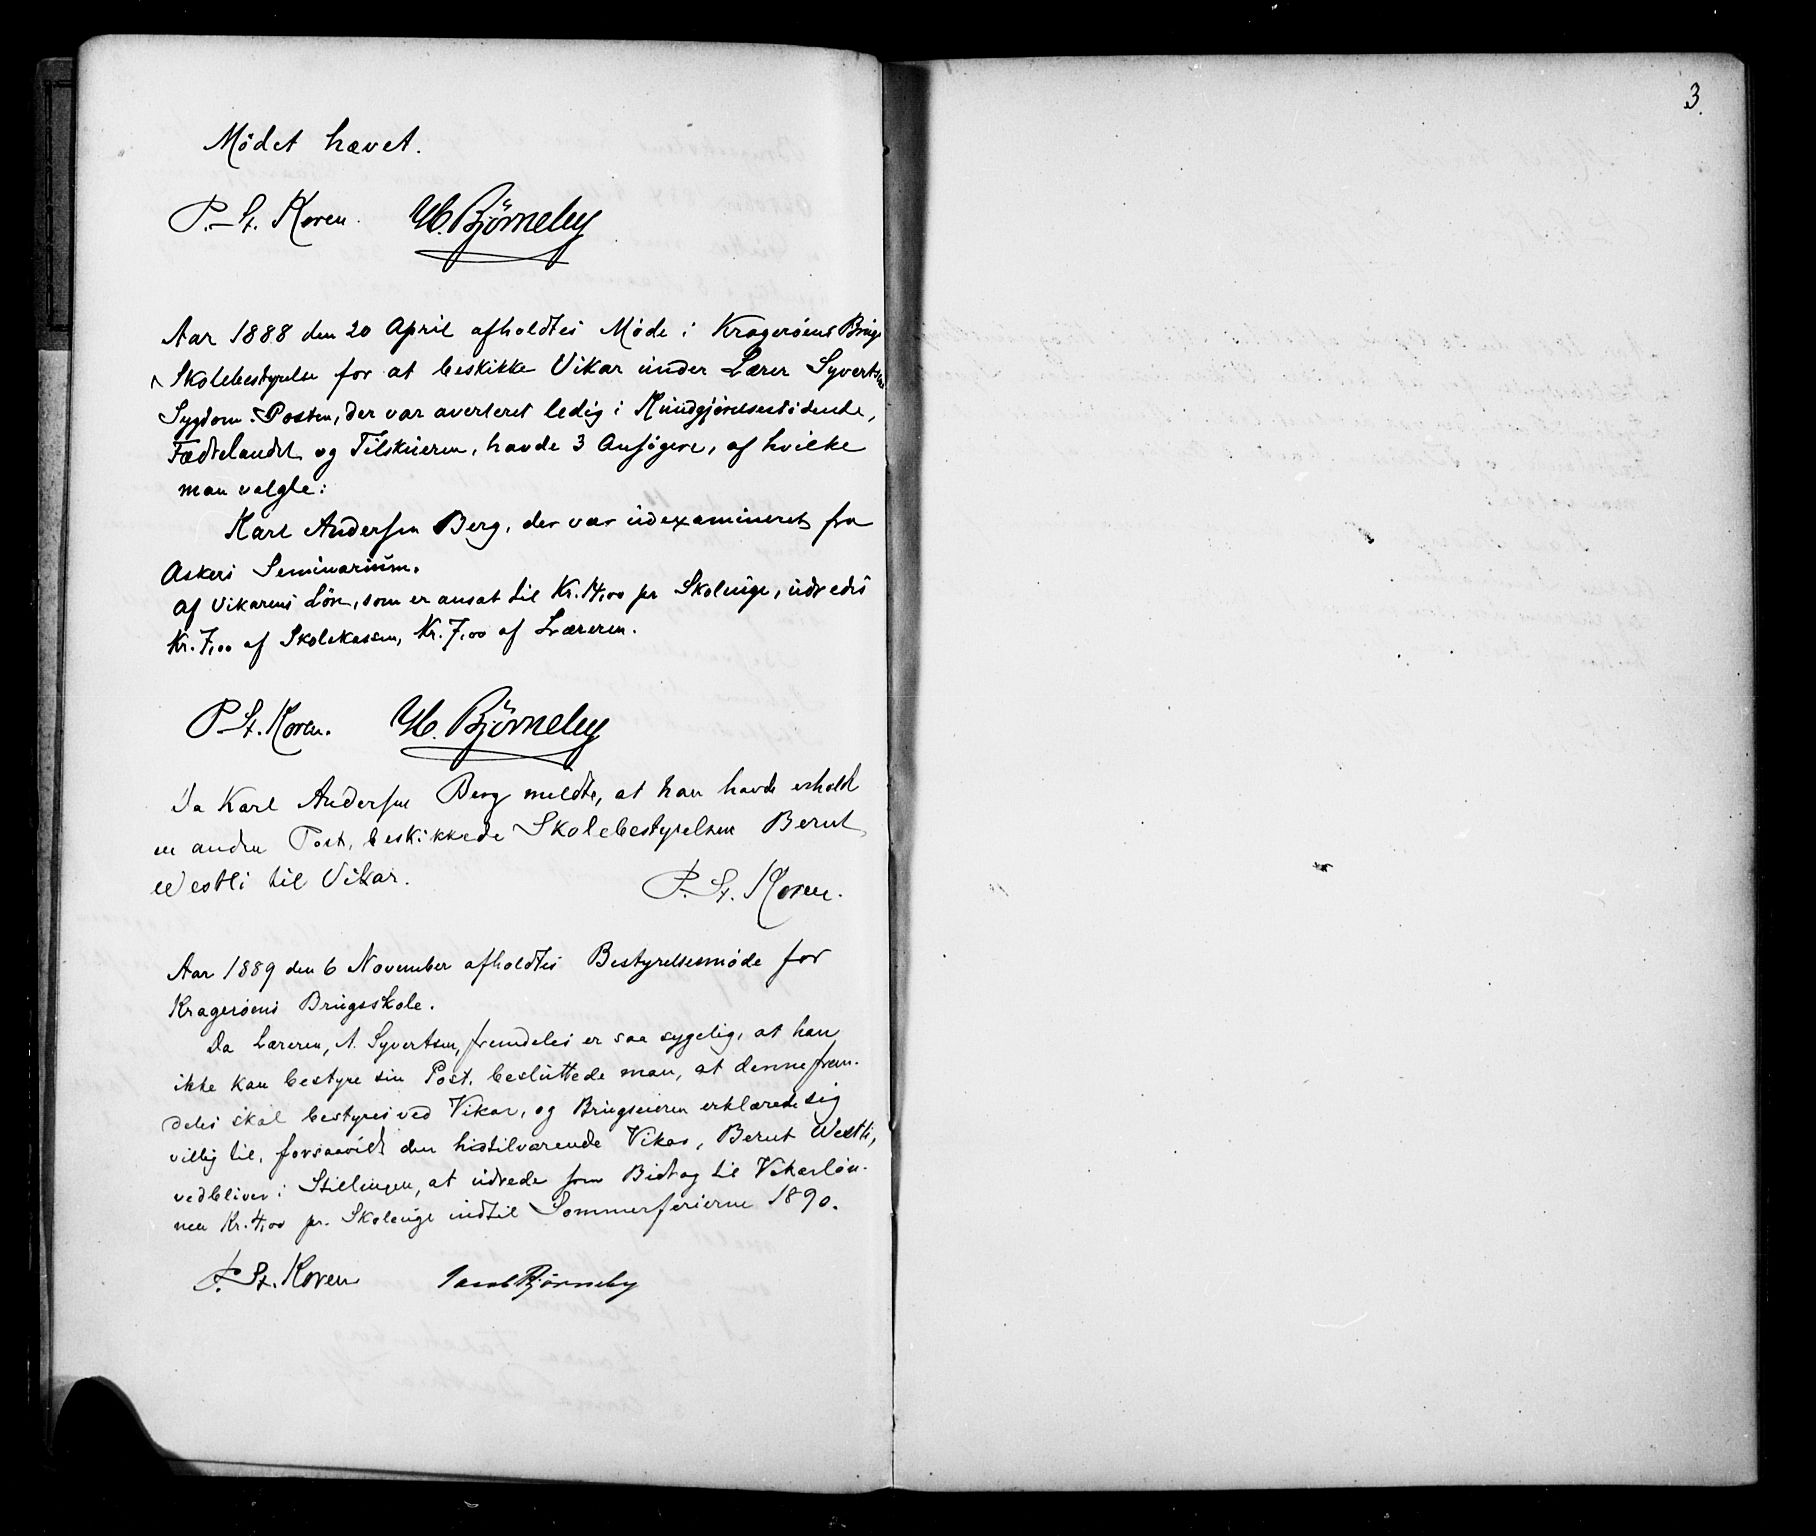 Mødet hævet.
P. St. Koren. H. Bjørneby
Aar 1888 den 20 April afholdtes Møde i Kragerøens Brugs
Skolebestyrelse for at beskikke Vikar under Lærer Syvertsens
Sygdom. Posten, der var averteret ledig i Kundgjørelsestidende,
Fædrelandet og Tilskueren, havde 3 Ansøgere, af hvilke
man valgte:
Karl Andersen Berg, der var udexamineret fra
Askers Seminarium.
Af Vikarens Løn, som er ansat til Kr. 14,00 pr Skoleuge, udredes
Kr. 7,00 af Skolekassen, Kr. 7,00 af Læreren.
P. St. Koren. H. Bjørneby
Da Karl Andersen Berg meldte, at han havde erholdt
en anden Post, beskikkede Skolebestyrelsen Bernt
Westli til Vikar.
P. St. Koren.
Aar 1889 den 6 November afholdtes Bestyrelsesmøde for
Kragerøens Brugsskole.
Da Læreren, A. Syvertsen, fremdeles er saa sygelig, at han
ikke kan bestyre sin Post, besluttede man, at denne frem-
deles skal bestyres ved Vikar, og Brugseieren erklærede sig
villig til, forsaavidt den hidtilværende Vikar, Bernt Westli,
vedbliver i Stillingen, at udrede som Bidrag til Vikarløn-
nen Kr. 4,00 pr. Skoleuge indtil Sommerferierne 1890.
P. St. Koren Jacob Bjørneby
3.